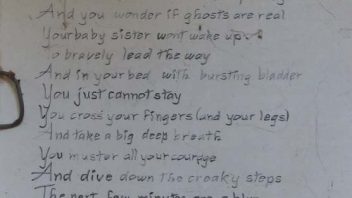 And you wonder if ghosts are real
Your baby sister wont wake up
To bravely lead the way
And in your bed with bursting bladder
You just cannot stay
You cross your fingers (and your legs)
And take a big deep breath
You muster all your courage
And dive down the creaky steps
The next few minutes are a blur